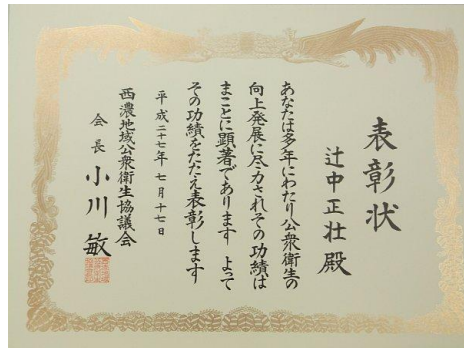 表彰状
辻中正壮殿
あなたは多年にわたり公衆衛生の
向上発展に尽力されその功績は
まことに顕著であります よって
その功績をたたえ表彰します
平成二十七年 七月十七日
西濃地域公衆衛生協議会
会長 小川 敏